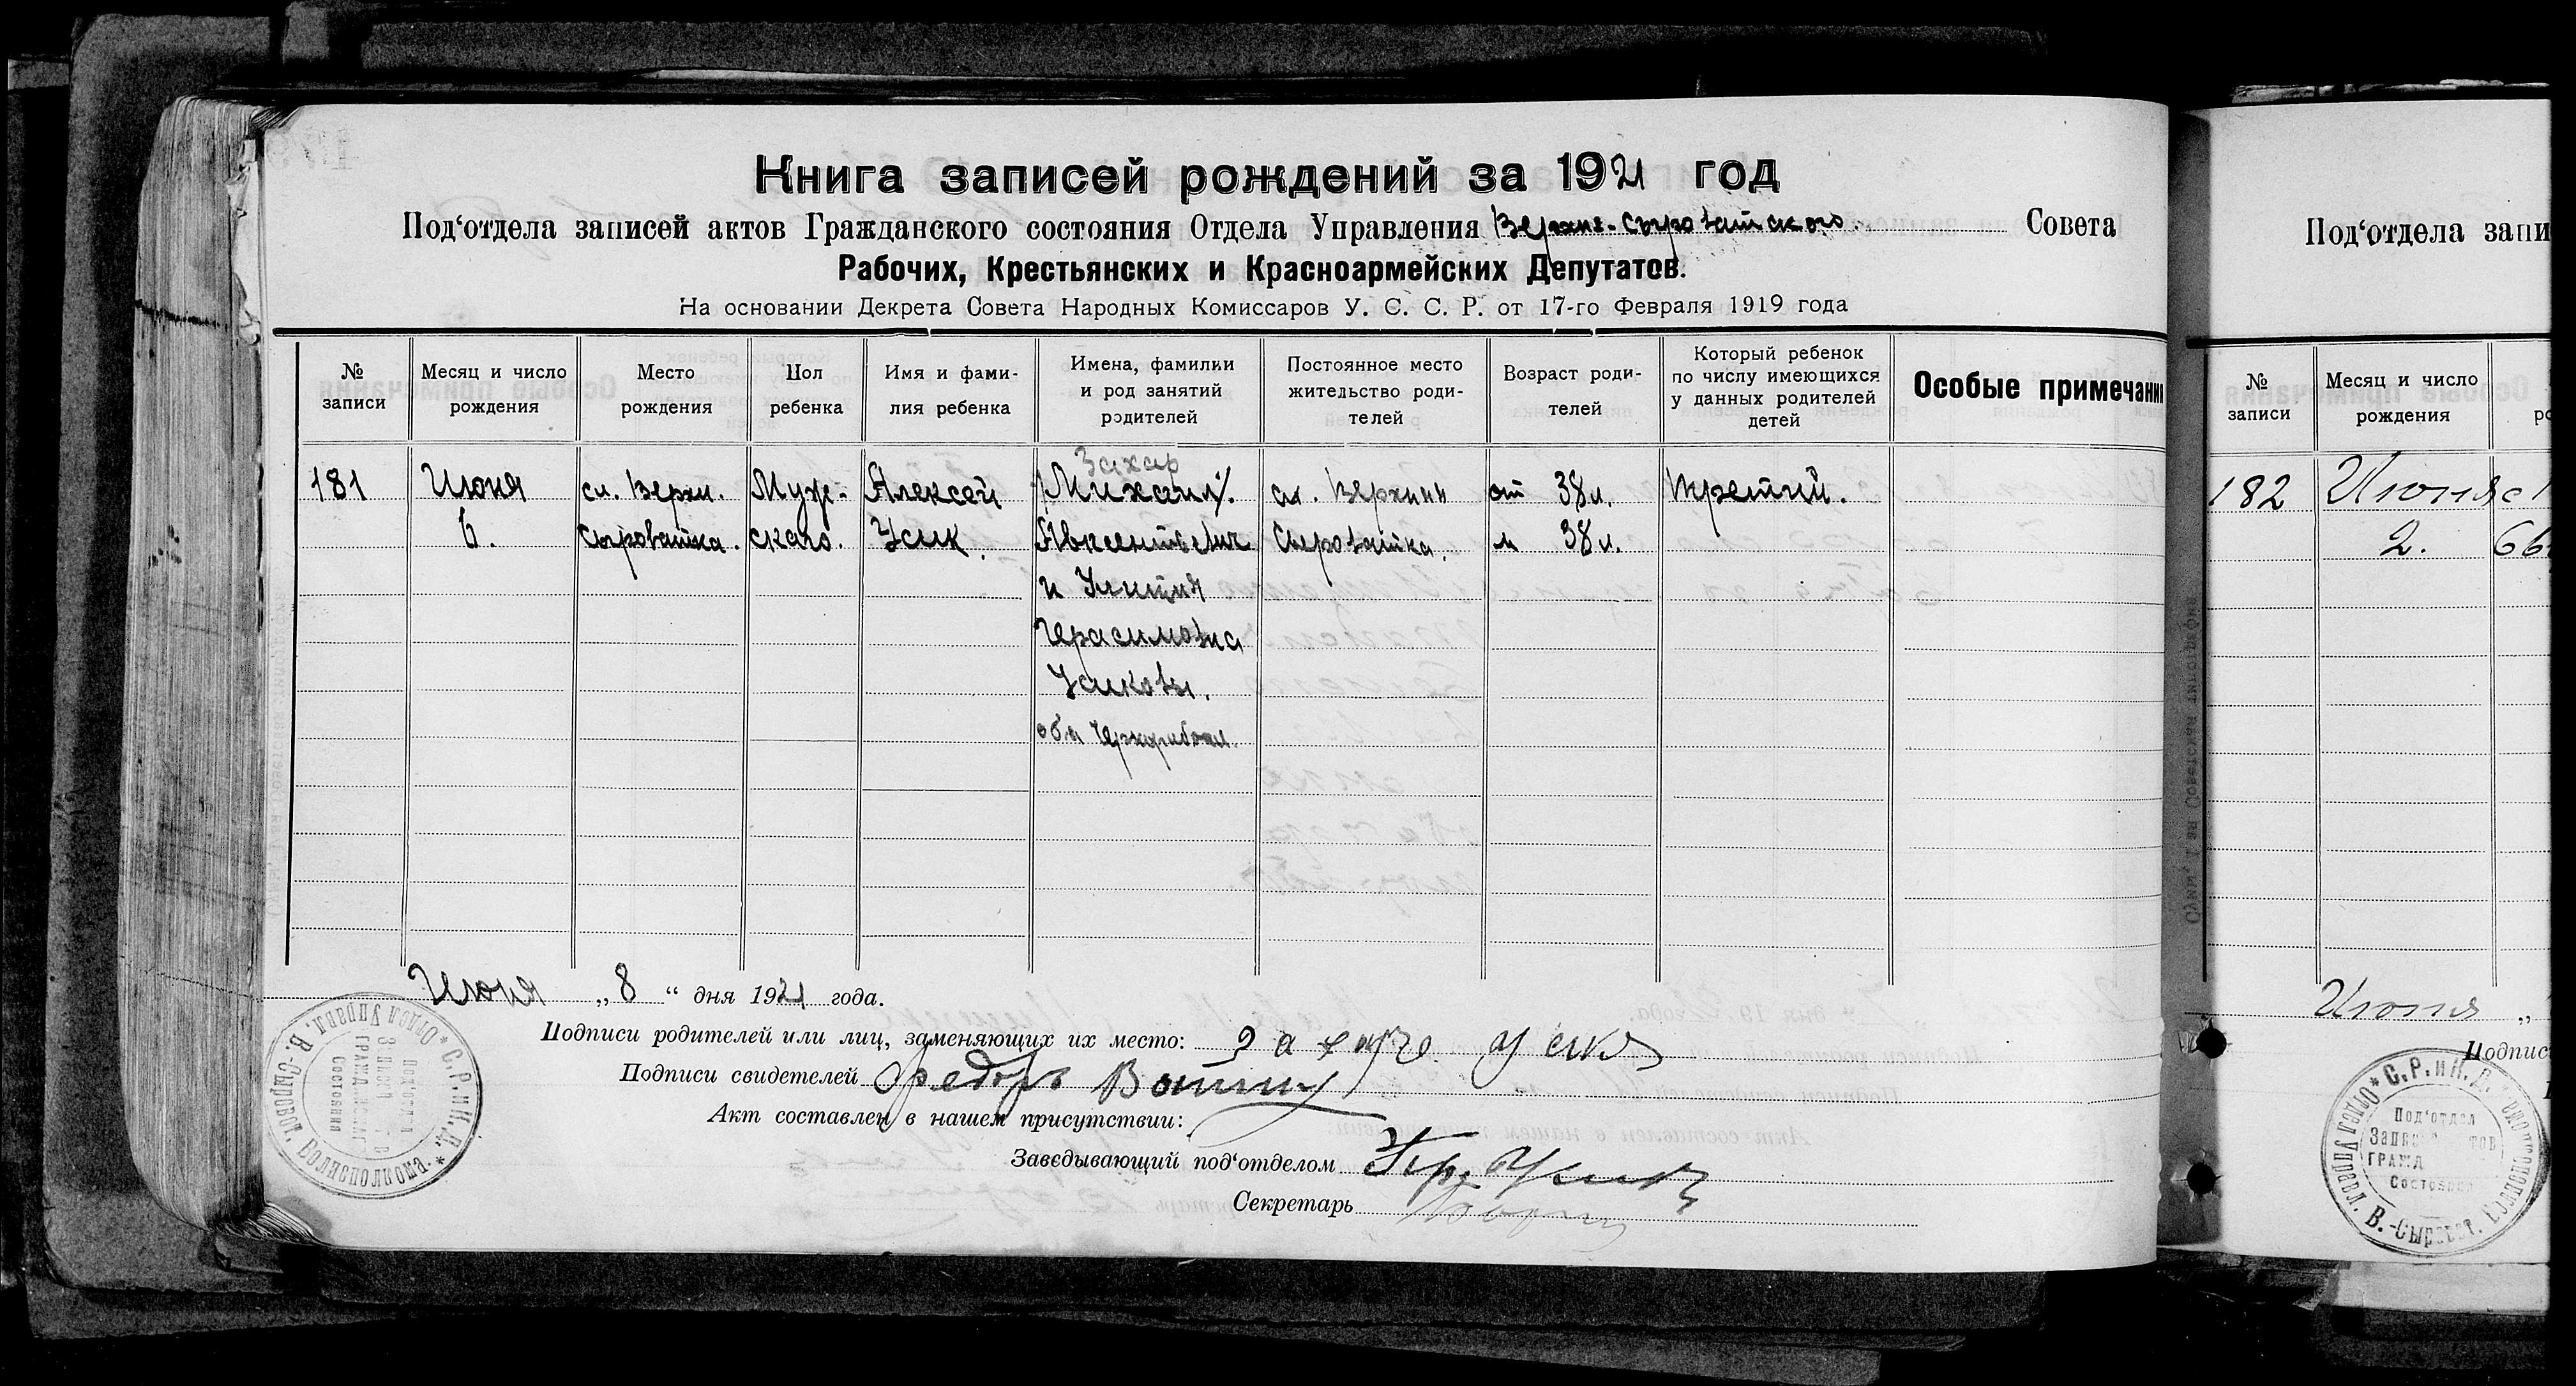 Книга записей рождений за 1921 год
Под‘отдела записей актов Гражданского состояния Отдела Управления Верхне-Сыроватского Совета
Рабочих, Крестьянских и Красноармейских Депутатов.
На основании Декрета Совета Народных Комиссаров У. С. С. Р. от 17-го Февраля 1919 года
№ записи
Месяц и число рождения
Место рождения
Пол ребенка
Имя и фамилия ребенка
Имена, фамилии и род занятий родителей
Постоянное место жительство родителей
Возраст родителей
Который ребенок по числу имеющихся у данных родителей детей
Особые примечани
181
Июня
6.
сл. Верхн.
Сыроватка.
Муж-
ского.
Алексей
Усик.
Захар
Михаил
Авксентьевич
и Улита
Герасимовна
Усиковы.
оба
сл. Верхняя
Сыроватка.
от 38 л.
м 38 л.
третий.
Июня „8“ дня 1921 года.
Подписи родителей или лиц, заменяющих их место: Захар Усик
Подписи свидетелей Федоръ
Акт составлен в нашем присутствии:
Заведывающий под‘отделом
Секретарь
Отдел Управл. В.-Сыроват. Волисполкома * С.Р. и К.Д. *
Под‘отдел
ГРАЖД
Состояния
Под‘отдела запи
№ записи
Месяц и число рождения
182
Июня
2.
Июня „
Подпис
С.Р. и К.Д.
Отдел Управл. В.-Сыроват.
Под‘отдел
ГРАЖД
Состояния